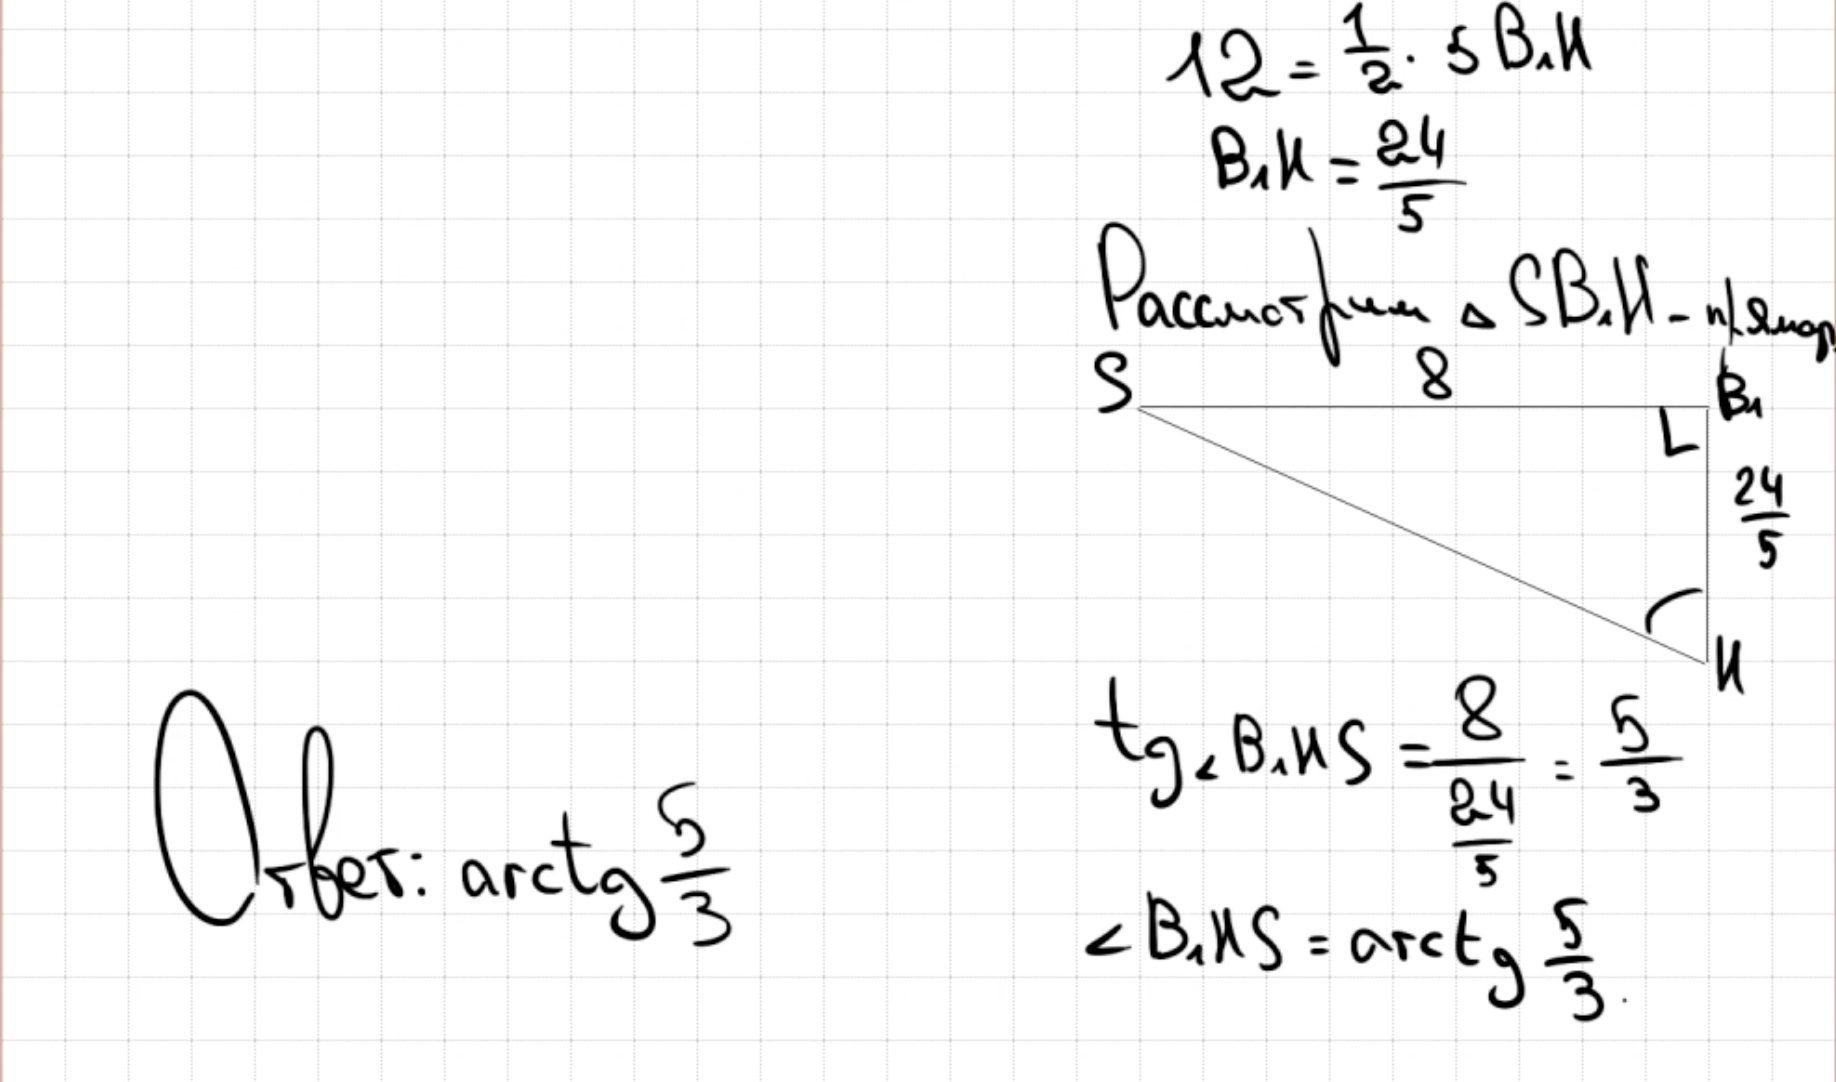 12 = 1/2 · 5 B₁H
B₁H = 24/5
Рассмотрим △ SB₁H - прямоуг.
S 8 B₁
24/5
H
tg ∠B₁HS = 8/(24/5) = 5/3
Ответ: arctg 5/3
∠B₁HS = arctg 5/3.